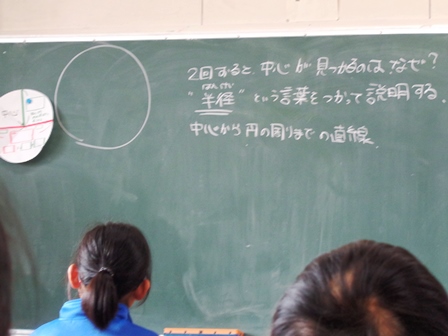 2回すると、中心が見つかるのはなぜ？
はんけい
"半径"という言葉をつかって説明する。
中心から円の周りまでの直線